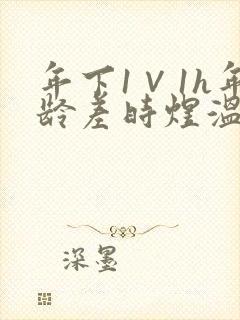 年下1V1h年
龄差时煜温
深墨